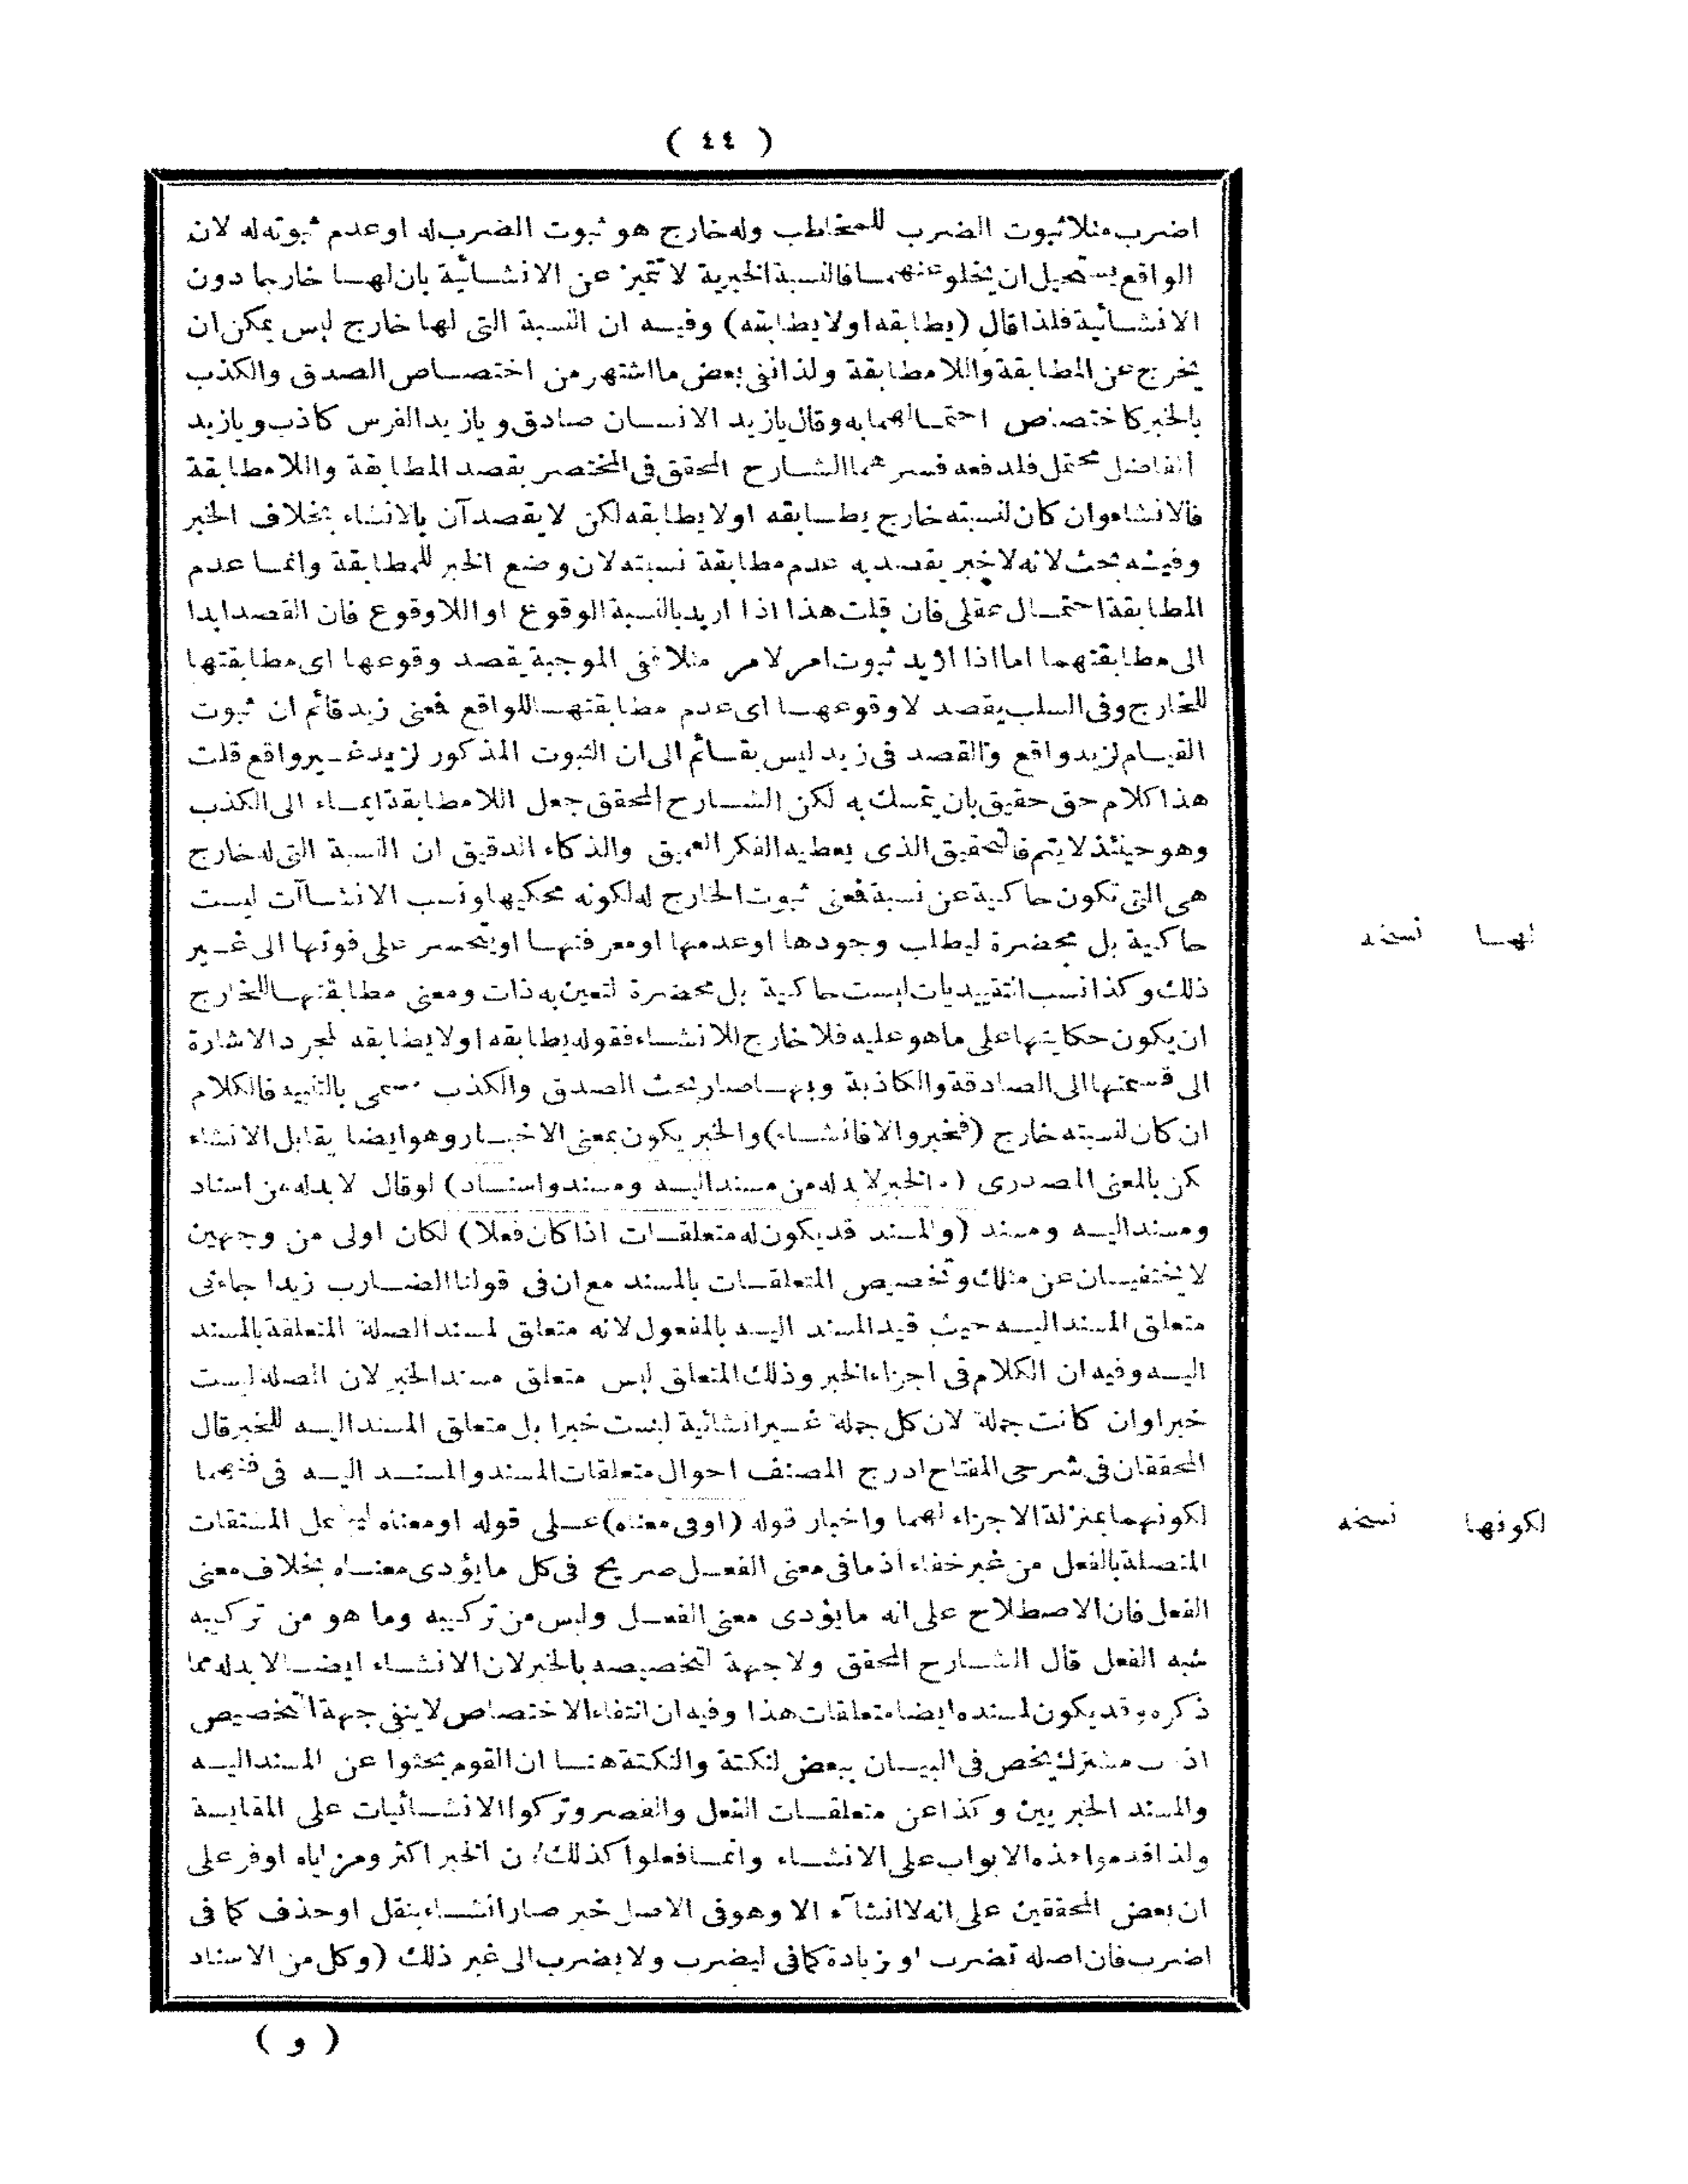 ( ٤٤ )
اضرب مثلا ثبوت الضرب للمخاطب وله خارج هو ثبوت الضرب له او عدم ثبوته له لان
الواقع يستحيل ان يخلو عنهما فالنسبة الخبرية لا تتميز عن الانشائية بان لها خارجا دون
الانشائية فلذا قال (يطابقه او لا يطابقه) وفيه ان النسبة التى لها خارج ليس يمكن ان
يخرج عن المطابقة واللامطابقة ولذا نفى بعض ما اشتهر من اختصاص الصدق والكذب
بالخبر كاختصاص احتمالهما به وقال يازيد الانسان صادق ويازيد الفرس كاذب ويازيد
الفاضل محتمل فلدفعه فسرهما الشارح المحقق فى المختصر بقصد المطابقة واللامطابقة
فالانشاء وان كان لنسبته خارج يطابقه او لا يطابقه لكن لا يقصدآن بالانشاء بخلاف الخبر
وفيه بحث لانه لا خبر يقصد به عدم مطابقة نسبته لان وضع الخبر للمطابقة وانما عدم
المطابقة احتمال عقلى فان قلت هذا اذا اريد بالنسبة الوقوع او اللاوقوع فان القصد ابدا
الى مطابقتهما اما اذا اريد ثبوت امر لامر مثلا ففى الموجبة يقصد وقوعها اى مطابقتها
للخارج وفى السلب يقصد لا وقوعها اى عدم مطابقتها للواقع فمعنى زيد قائم ان ثبوت
القيام لزيد واقع والقصد فى زيد ليس بقائم الى ان الثبوت المذكور لزيد غير واقع قلت
هذا كلام حق حقيق بان يتمسك به لكن الشارح المحقق جعل اللامطابقة ايماء الى الكذب
وهو حينئذ لا يتم فالتحقيق الذى يعطيه الفكر العميق والذكاء الدقيق ان النسبة التى له خارج
هى التى تكون حاكية عن نسبة فمعنى ثبوت الخارج له لكونه محكيها ونسب الانشاآت ليست
حاكية بل محضرة ليطلب وجودها او عدمها او معرفتها او يتحسر على فوتها الى غير
ذلك وكذا نسب التقييديات ليست حاكية بل محضرة لتعين به ذات ومعنى مطابقتها للخارج
ان يكون حكايتها على ما هو عليه فلا خارج للانشاء فقوله يطابقه او لا يطابقه لمجرد الاشارة
الى قسمتها الى الصادقة والكاذبة وبها صار بحث الصدق والكذب مسمى بالتنبيه فالكلام
ان كان لنسبته خارج (فخبر والا فانشاء) والخبر يكون بمعنى الاخبار وهو ايضا يقابل الانشاء
كن بالمعنى المصدرى (والخبر لا بد له من مسند اليه ومسند واسناد) لو قال لا بد له من اسناد
ومسند اليه ومسند (والمسند قد يكون له متعلقات اذا كان فعلا) لكان اولى من وجهين
لا يختفيان عن مثلك وتخصيص المتعلقات بالمسند مع ان فى قولنا الضارب زيدا جاءنى
متعلق المسند اليه حيث قيد المسند اليه بالمفعول لانه متعلق لمسند الصلة المتعلقة بالمسند
اليه وفيه ان الكلام فى اجزاء الخبر وذلك المتعلق ليس متعلق مسند الخبر لان الصلة ليست
خبرا وان كانت جملة لان كل جملة غير انشائية ليست خبرا بل متعلق المسند اليه للخبر قال
المحققان فى شرحى المفتاح ادرج المصنف احوال متعلقات المسند والمسند اليه فى فنيهما
لكونهما بمنزلة الاجزاء لهما واختار قوله (او فى معناه) على قوله او معناه ليشمل المشتقات
المتصلة بالفعل من غير خفاء اذ ما فى معنى الفعل صريح فى كل ما يؤدى معناه بخلاف معنى
الفعل فان الاصطلاح على انه ما يؤدى معنى الفعل وليس من تركيبه وما هو من تركيبه
شبه الفعل قال الشارح المحقق ولا جهة لتخصيصه بالخبر لان الانشاء ايضا لا بد له مما
ذكره وقد يكون لمسنده ايضا متعلقات هذا وفيه ان انتفاء الاختصاص لا ينفى جهة التخصيص
اذ رب مشترك يخص فى البيان ببعض لنكتة والنكتة هنا ان القوم بحثوا عن المسند اليه
والمسند الخبريين وكذا عن متعلقات الفعل والقصر وتركوا الانشائيات على المقايسة
ولذا قدموا هذه الابواب على الانشاء وانما فعلوا كذلك لان الخبر اكثر ومزاياه اوفر على
ان بعض المحققين على انه لا انشآء الا وهو فى الاصل خبر صار انشاء بنقل او حذف كما فى
اضرب فان اصله تضرب او زيادة كما فى ليضرب ولا يضرب الى غير ذلك (وكل من الاسناد
( و )
لها نسخه
لكونها نسخه